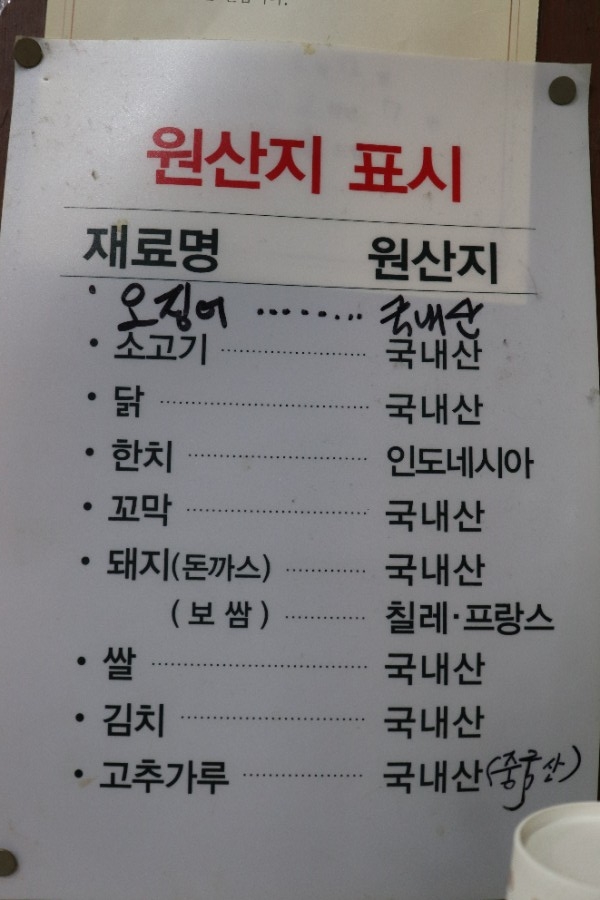 원산지 표시
재료명 원산지
· 오징어 ········ 국내산
· 소고기 ········ 국내산
· 닭 ········ 국내산
· 한치 ········ 인도네시아
· 꼬막 ········ 국내산
· 돼지(돈까스) ········ 국내산
(보쌈) ········ 칠레·프랑스
· 쌀 ········ 국내산
· 김치 ········ 국내산
· 고추가루 ········ 국내산(중국산)